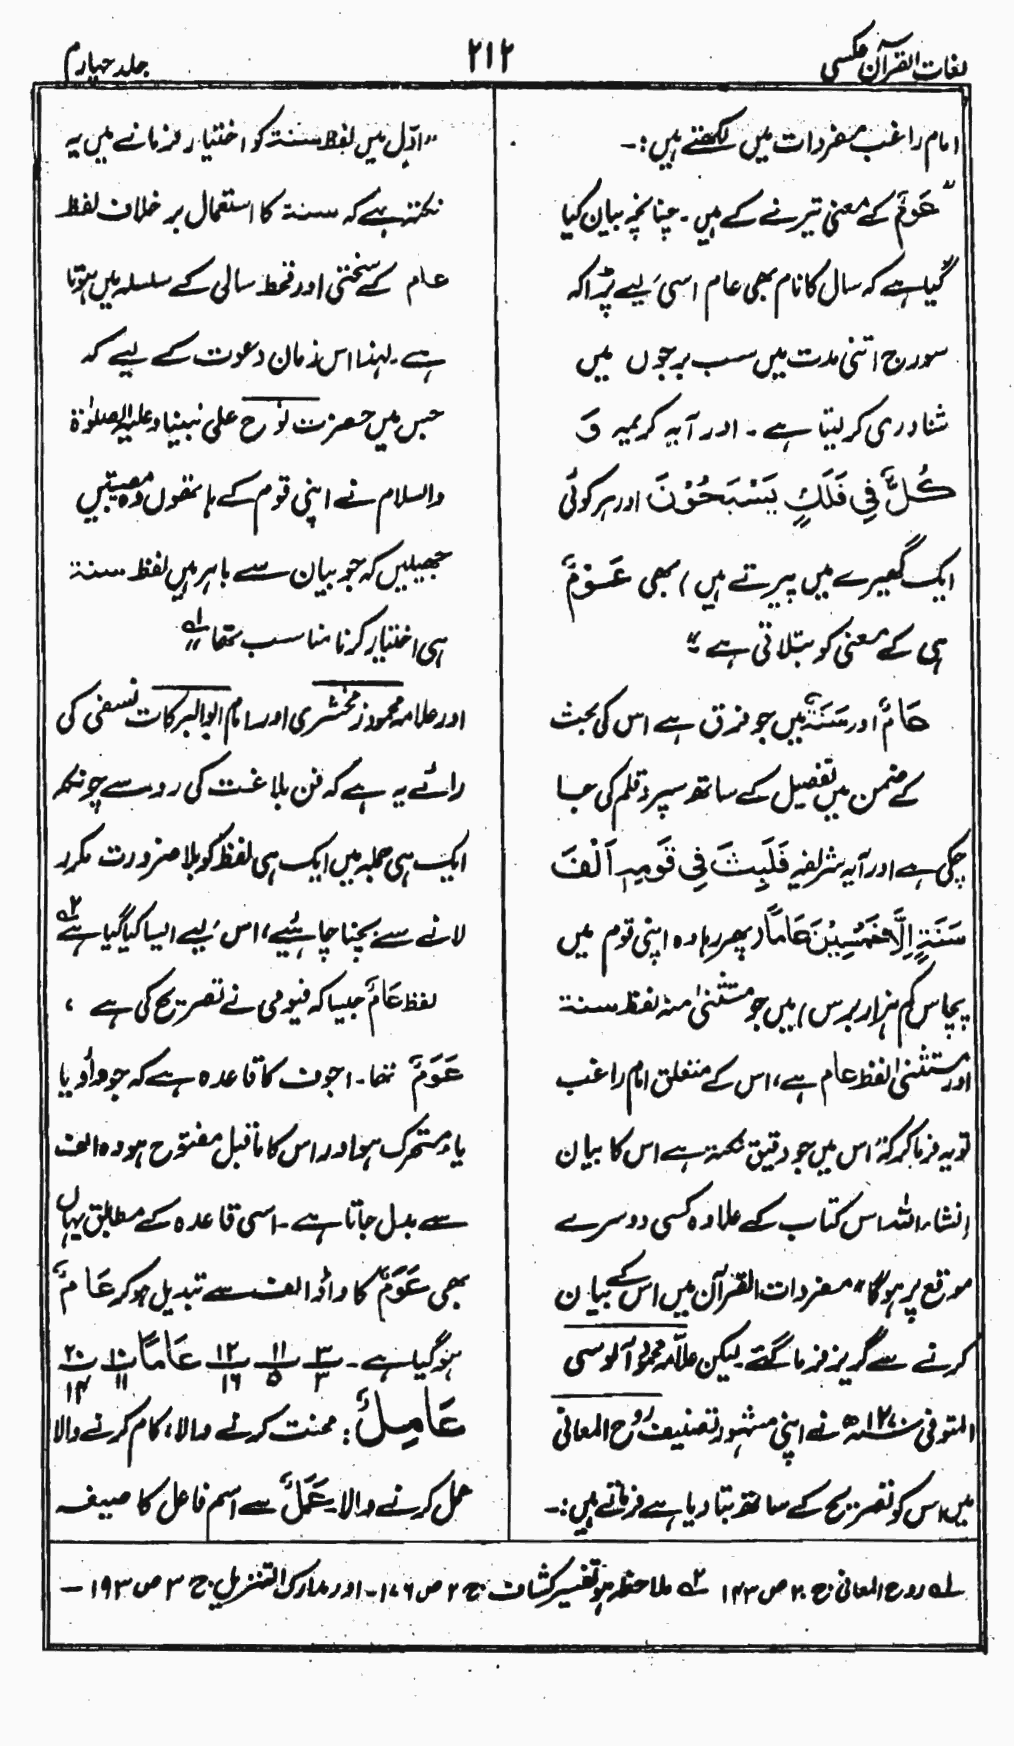 لغات القرآن عکسی
۲۱۲
جلد چہارم
امام راغب مفردات میں لکھتے ہیں :۔
"عَوْمٌ کے معنی تیرنے کے ہیں ۔ چنانچہ بیان کیا
گیا ہے کہ سال کا نام بھی عام اسی لیے پڑا کہ
سورج اتنی مدت میں سب برجوں میں
شناوری کر لیتا ہے ۔ اور آیہ کریمہ وَ
كُلٌّ فِي فَلَكٍ يَسْبَحُوْنَ اور ہر کوئی
ایک گھیرے میں پیرتے ہیں) بھی عَوْمٌ
ہی کے معنی کو بتلاتی ہے "
عَامٌ اور سَنَةٌ میں جو فرق ہے اس کی بحث
کے ضمن میں تفصیل کے ساتھ سپردِ قلم کی جا
چکی ہے اور آیہ شریفہ فَلَبِثَ فِي قَوْمِهٖ اَلْفَ
سَنَةٍ اِلَّا خَمْسِيْنَ عَامًا (پھر رہا وہ اپنی قوم میں
پچاس کم ہزار برس) میں جو مستثنیٰ منہ لفظ سنۃ
اور مستثنیٰ لفظ عام ہے، اس کے متعلق امام راغب
تو یہ فرما کر کہ" اس میں جو دقیق نکتہ ہے اس کا بیان
انشاء اللہ اس کتاب کے علاوہ کسی دوسرے
موقع پر ہوگا" مفردات القرآن میں اس کے بیان
کرنے سے گریز فرما گئے لیکن علّامہ محمود آلوسی
المتوفی ۱۲۷۰ھ نے اپنی مشہور تصنیف روح المعانی
میں اس کو تصریح کے ساتھ بتا دیا ہے فرماتے ہیں :۔
"اوّل میں لفظ سنۃ کو اختیار فرمانے میں یہ
نکتہ ہے کہ سنۃ کا استعمال بر خلاف لفظ
عام کے سختی اور قحط سالی کے سلسلہ میں ہوتا
ہے ۔ لہٰذا اس زمان دعوت کے لیے کہ
جس میں حضرت نوح علی نبینا و علیہ الصلوٰۃ
والسلام نے اپنی قوم کے ہاتھوں وہ مصیبتیں
جھیلیں کہ جو بیان سے باہر ہیں لفظ سنۃ
ہی اختیار کرنا مناسب تھا" لہ
اور علامہ محمود زمخشری اور امام ابوالبرکات نسفی کی
رائے یہ ہے کہ فن بلاغت کی رو سے چونکہ
ایک ہی جملہ میں ایک ہی لفظ کو بلا ضرورت مکرر
لانے سے بچنا چاہئیے، اس لیے ایسا کیا گیا ہے ۲ہ
لفظ عَامٌ جیسا کہ فیومی نے تصریح کی ہے ،
عَوَمٌ تھا ۔ اجوف کا قاعدہ ہے کہ جو واؤ یا
یاء متحرک ہو اور اس کا ماقبل مفتوح ہو وہ الف
سے بدل جاتا ہے ۔ اسی قاعدہ کے مطابق یہاں
بھی عَوَمٌ کا واؤ الف سے تبدیل ہو کر عَامٌ
ہو گیا ہے ۔ ۳/۳ ۱۱/۵ ۱۲/۱۶ عَامًا ۱۰/۱۱ ۲۰/۱۴
عَامِلٌ : محنت کرنے والا، کام کرنے والا
عمل کرنے والا ۔ عَمَلٌ سے اسم فاعل کا صیغہ
لہ روح المعانی ج ۲۰ ص ۱۴۳ ۲ہ ملاحظہ ہو تفسیر کشاف ج ۲ ص ۱۷۶ ۔ اور مدارک التنزیل ج ۳ ص ۱۹۳ ۔